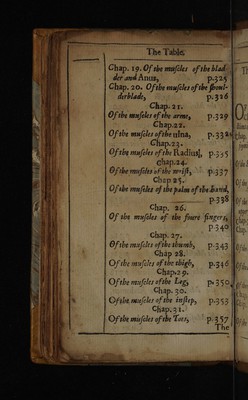 The Table.
Chap. 19. Of the muscles of the blad-
der and Anus, p.325
Chap. 20. Of the muscles of the shoul-
derblade, p.326
Chap. 21.
Of the muscles of the arme, p.329
Chap. 22.
Of the muscles of the ulna, p.332
Chap. 23.
Of the muscles of the Radius, p.335
Chap. 24.
Of the muscles of the wrist, p.337
Chap 25.
Of the muscles of the palm of the hand,
p.338
Chap. 26.
Of the muscles of the foure fingers,
p.340
Chap. 27.
Of the muscles of the thumb, p.343
Chap 28.
Of the muscles of the thigh, p.346
Chap. 29.
Of the muscles of the Leg, p.350
Chap. 30.
Of the muscles of the instep, p.353
Chap. 31.
Of the muscles of the Toes, p.357
The